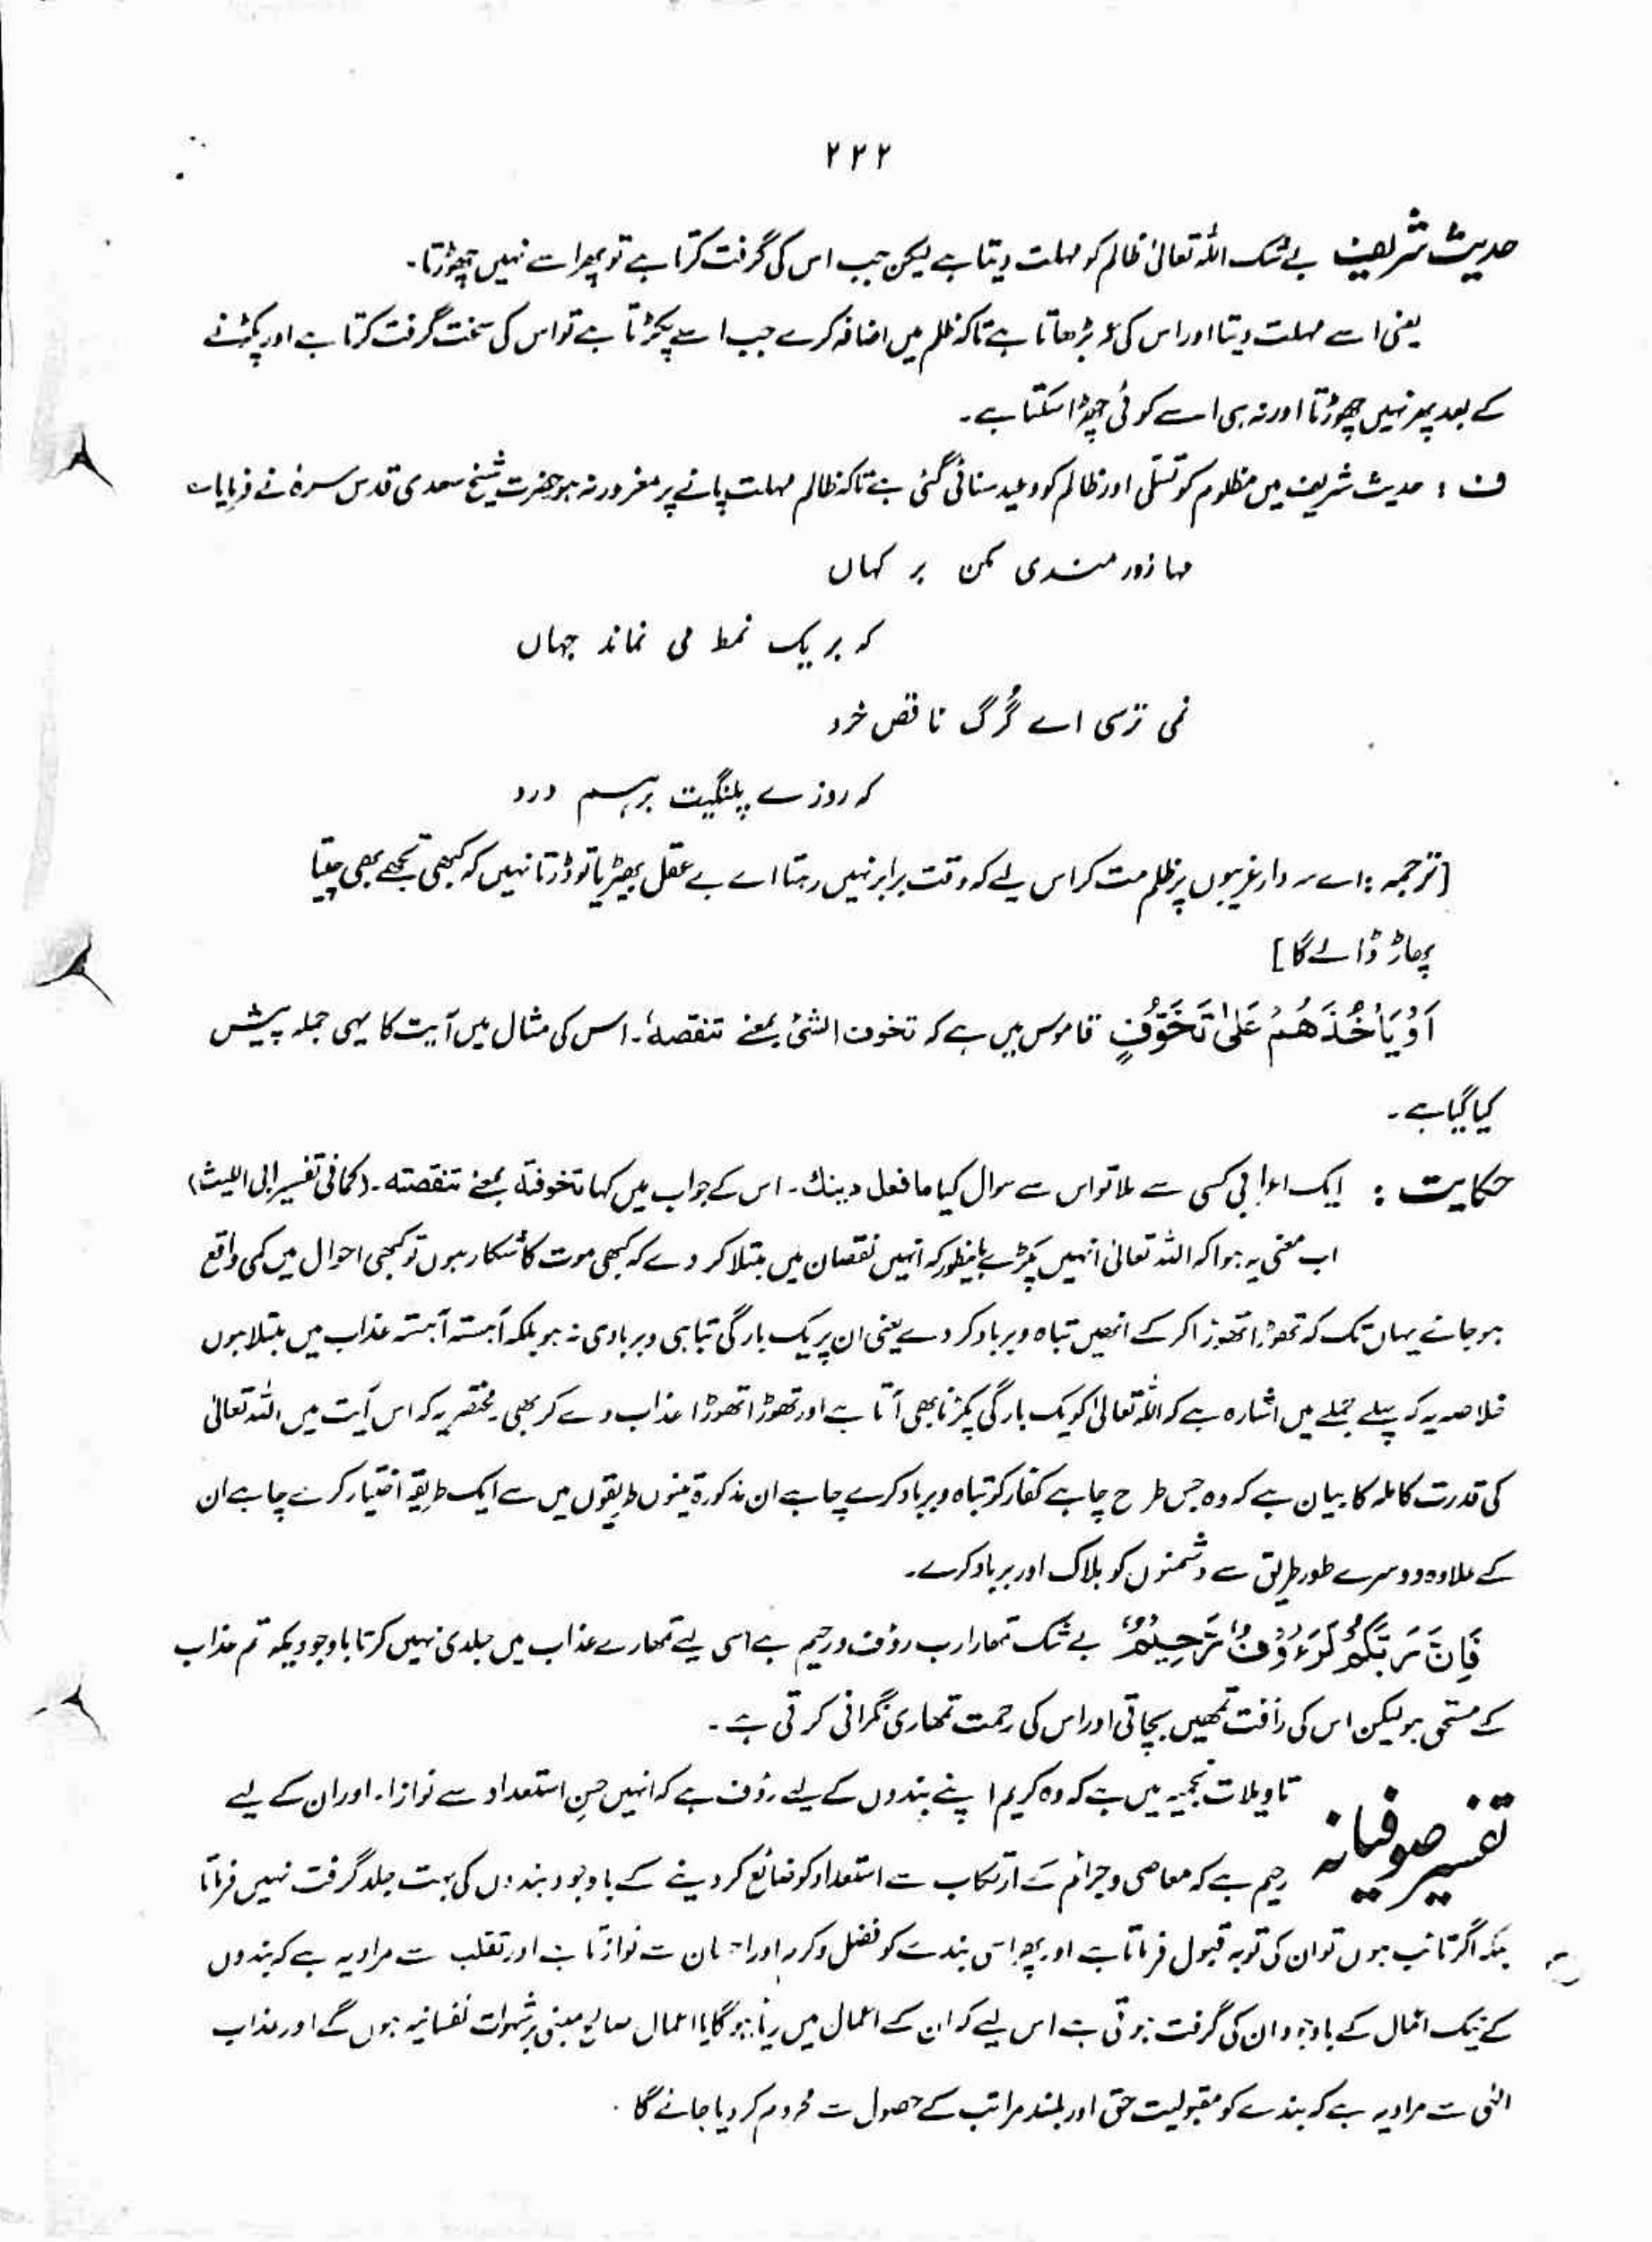 ۲۲۲
حدیث شریف بے شک اللہ تعالیٰ ظالم کو مہلت دیتا ہے لیکن جب اس کی گرفت کرتا ہے تو پھر اسے نہیں چھوڑتا۔
یعنی اسے مہلت دیتا اور اس کی عمر بڑھاتا ہے تاکہ ظلم میں اضافہ کرے جب اسے پکڑتا ہے تو اس کی سخت گرفت کرتا ہے اور پکڑنے
کے بعد پھر نہیں چھوڑتا اور نہ ہی اسے کوئی چھڑا سکتا ہے۔
ف : حدیث شریف میں مظلوم کو تسلی اور ظالم کو وعید سنائی گئی ہے تاکہ ظالم مہلت پانے پر مغرور نہ ہو حضرت شیخ سعدی قدس سرہٗ نے فرمایا ؎
مہا زور مندی مکن بر کہاں
کہ بر یک نمط می نماند جہاں
نمی ترسی اے گُرگ ناقص خرد
کہ روزے پلنگیت برہم درد
[ترجمہ : اے سردار غریبوں پر ظلم مت کر اس لیے کہ وقت برابر نہیں رہتا اے بے عقل بھیڑیا تو ڈرتا نہیں کہ کبھی تجھے بھی چیتا
پھاڑ ڈالے گا]
اَوْ يَاْخُذَهُمْ عَلٰى تَخَوُّفٍ قاموس میں ہے کہ تخوف الشئ بمعنے تنقصهٗ۔ اس کی مثال میں آیت کا یہی جملہ پیش
کیا گیا ہے۔
حکایت : ایک اعرابی کسی سے ملا تو اس سے سوال کیا ما فعل دینك۔ اس کے جواب میں کہا تخوفته بمعنے تنقصته۔ (کما فی تفسیر ابی اللیث)
اب معنی یہ ہوا کہ اللہ تعالیٰ انہیں پکڑے بایں طور کہ انہیں نقصان میں مبتلا کر دے کہ کبھی موت کا شکار ہوں تو کبھی احوال میں کمی واقع
ہو جائے یہاں تک کہ تھوڑا تھوڑا کر کے انھیں تباہ و برباد کر دے یعنی ان پر یک بارگی تباہی و بربادی نہ ہو بلکہ آہستہ آہستہ عذاب میں مبتلا ہوں
خلاصہ یہ کہ پہلے جملے میں اشارہ ہے کہ اللہ تعالیٰ کو یک بارگی پکڑنا بھی آتا ہے اور تھوڑا تھوڑا عذاب دے کر بھی۔ مختصر یہ کہ اس آیت میں اللہ تعالیٰ
کی قدرت کاملہ کا بیان ہے کہ وہ جس طرح چاہے کفار کو تباہ و برباد کرے چاہے ان مذکورۃ تینوں طریقوں میں سے ایک طریقہ اختیار کرے چاہے ان
کے علاوہ دوسرے طور طریق سے دشمنوں کو ہلاک اور برباد کرے۔
فَاِنَّ رَبَّكُمْ لَرَءُوْفٌ رَّحِيْمٌ بے شک تمھارا رب رؤف و رحیم ہے اسی لیے تمھارے عذاب میں جلدی نہیں کرتا باوجودیکہ تم عذاب
کے مستحق ہو لیکن اس کی رأفت تمھیں بچاتی اور اس کی رحمت تمھاری نگرانی کرتی ہے۔
تفسیر صوفیانہ تاویلات نجمیہ میں ہے کہ وہ کریم اپنے بندوں کے لیے رؤف ہے کہ انہیں حسن استعداد سے نوازا۔ اور ان کے لیے
رحیم ہے کہ معاصی و جرائم کے ارتکاب سے استعداد کو ضائع کر دینے کے باوجود بندوں کی بہت جلد گرفت نہیں فرماتا
بلکہ اگر تائب ہوں تو ان کی توبہ قبول فرماتا ہے اور پھر اس بندے کو فضل و کرم اور احسان سے نوازتا ہے اور تقلب سے مراد یہ ہے کہ بندوں
کے نیک اعمال کے باوجود ان کی گرفت ہوتی ہے اس لیے کہ ان کے اعمال میں ریأ ہو گا یا اعمال صالح مبنی بر شہوات نفسانیہ ہوں گے اور عذاب
الٰہی سے مراد یہ ہے کہ بندے کو مقبولیت حق اور بلند مراتب کے حصول سے محروم کر دیا جائے گا .